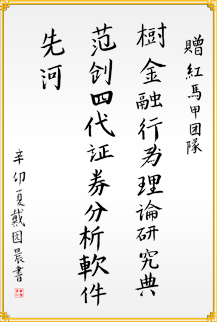 贈紅馬甲团隊
樹金融行為理論研究典
范創四代証券分析軟件
先河
辛卯夏戴园晨書